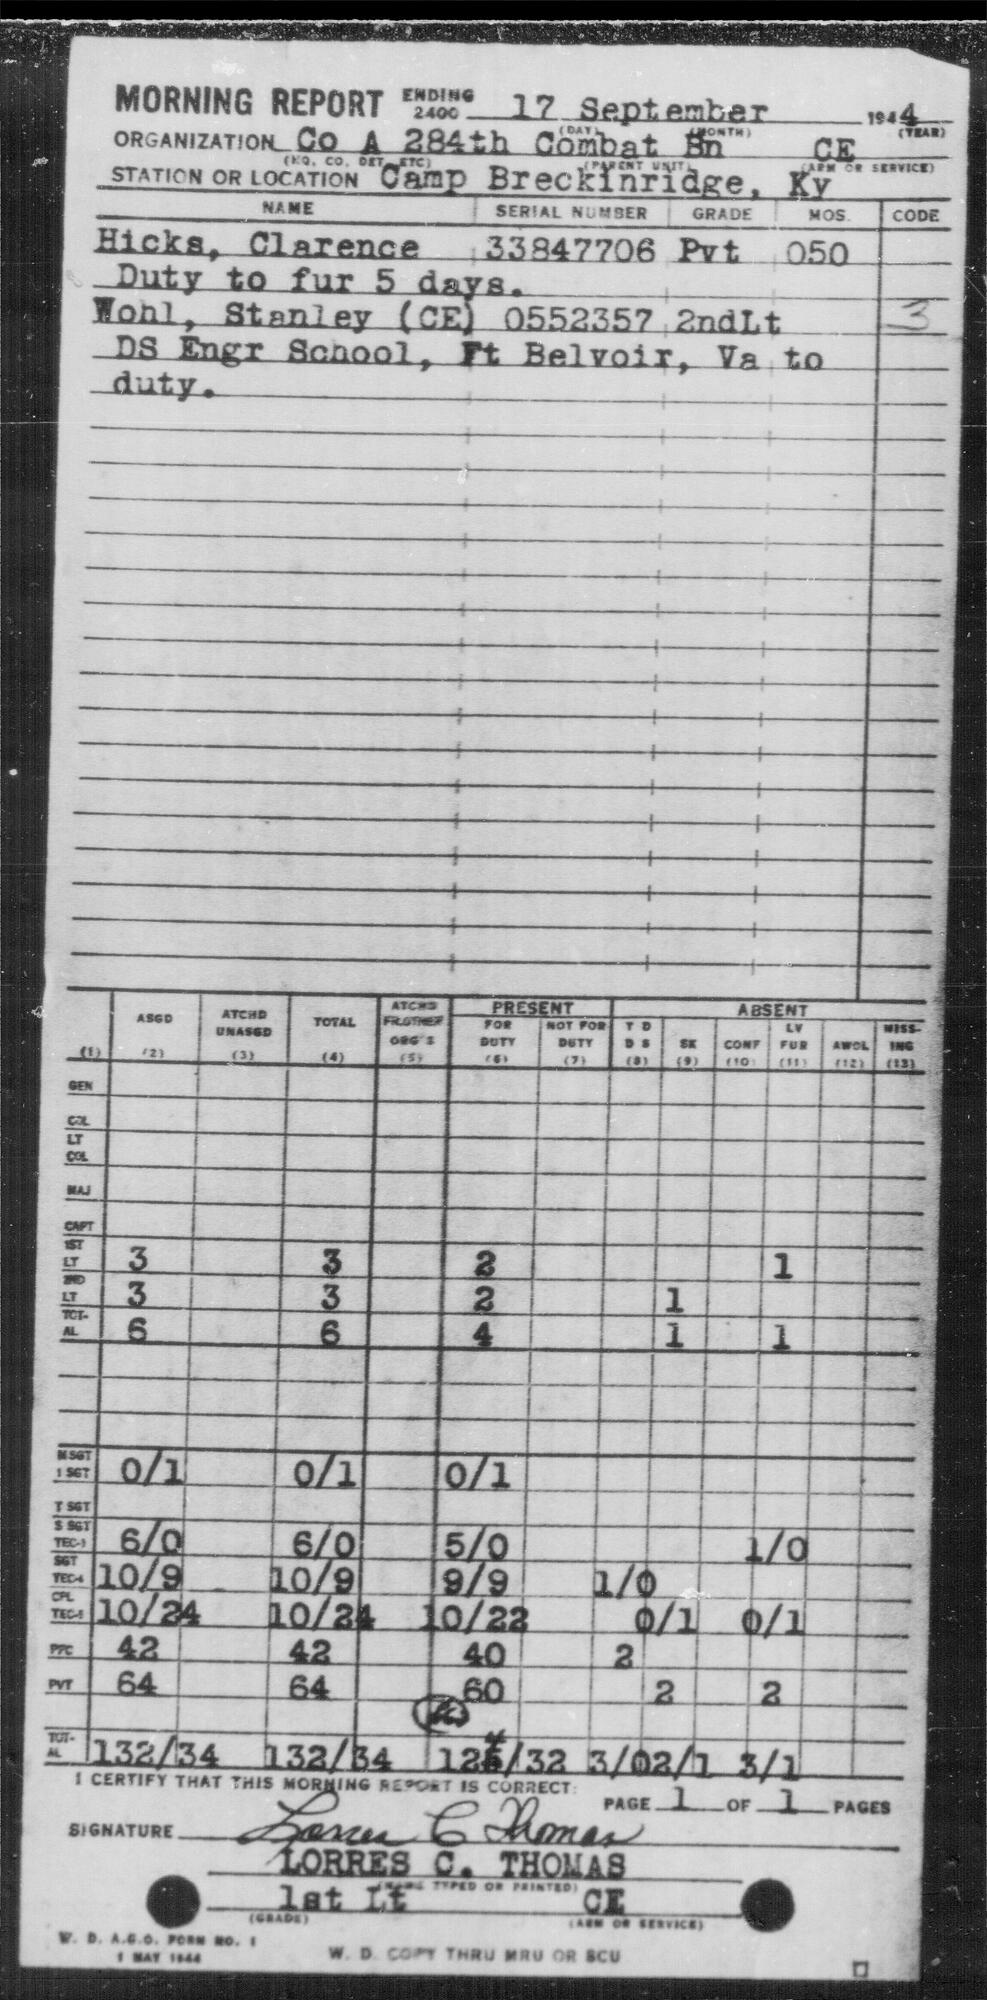 MORNING REPORT ENDING 2400 17 September 1944
(DAY) (MONTH) (YEAR)
ORGANIZATION Co A 284th Combat Bn CE
(HQ, CO, DET, ETC) (PARENT UNIT) (ARM OR SERVICE)
STATION OR LOCATION Camp Breckinridge, Ky
NAME SERIAL NUMBER GRADE MOS. CODE
Hicks, Clarence 33847706 Pvt 050
Duty to fur 5 days.
Wohl, Stanley (CE) 0552357 2ndLt 3
DS Engr School, Ft Belvoir, Va to
duty.
ASGD ATCHD UNASGD TOTAL ATCHD FR.OTHER ORG'S PRESENT FOR DUTY NOT FOR DUTY ABSENT T D D S SK CONF LV FUR AWOL MISSING
(1) (2) (3) (4) (5) (6) (7) (8) (9) (10) (11) (12) (13)
GEN
COL
LT COL
MAJ
CAPT
1ST LT 3 3 2 1
2ND LT 3 3 2 1
TOT-AL 6 6 4 1 1
M SGT 1 SGT 0/1 0/1 0/1
T SGT
S SGT TEC-3 6/0 6/0 5/0 1/0
SGT TEC-4 10/9 10/9 9/9 1/0
CPL TEC-5 10/24 10/24 10/22 0/1 0/1
PFC 42 42 40 2
PVT 64 64 60 2 2
TOT-AL 132/34 132/34 124/32 3/0 2/1 3/1
I CERTIFY THAT THIS MORNING REPORT IS CORRECT:
PAGE 1 OF 1 PAGES
SIGNATURE Lorres C Thomas
LORRES C. THOMAS
(NAME TYPED OR PRINTED)
1st Lt CE
(GRADE) (ARM OR SERVICE)
W. D. A.G.O. FORM NO. 1
1 MAY 1944
W. D. COPY THRU MRU OR SCU